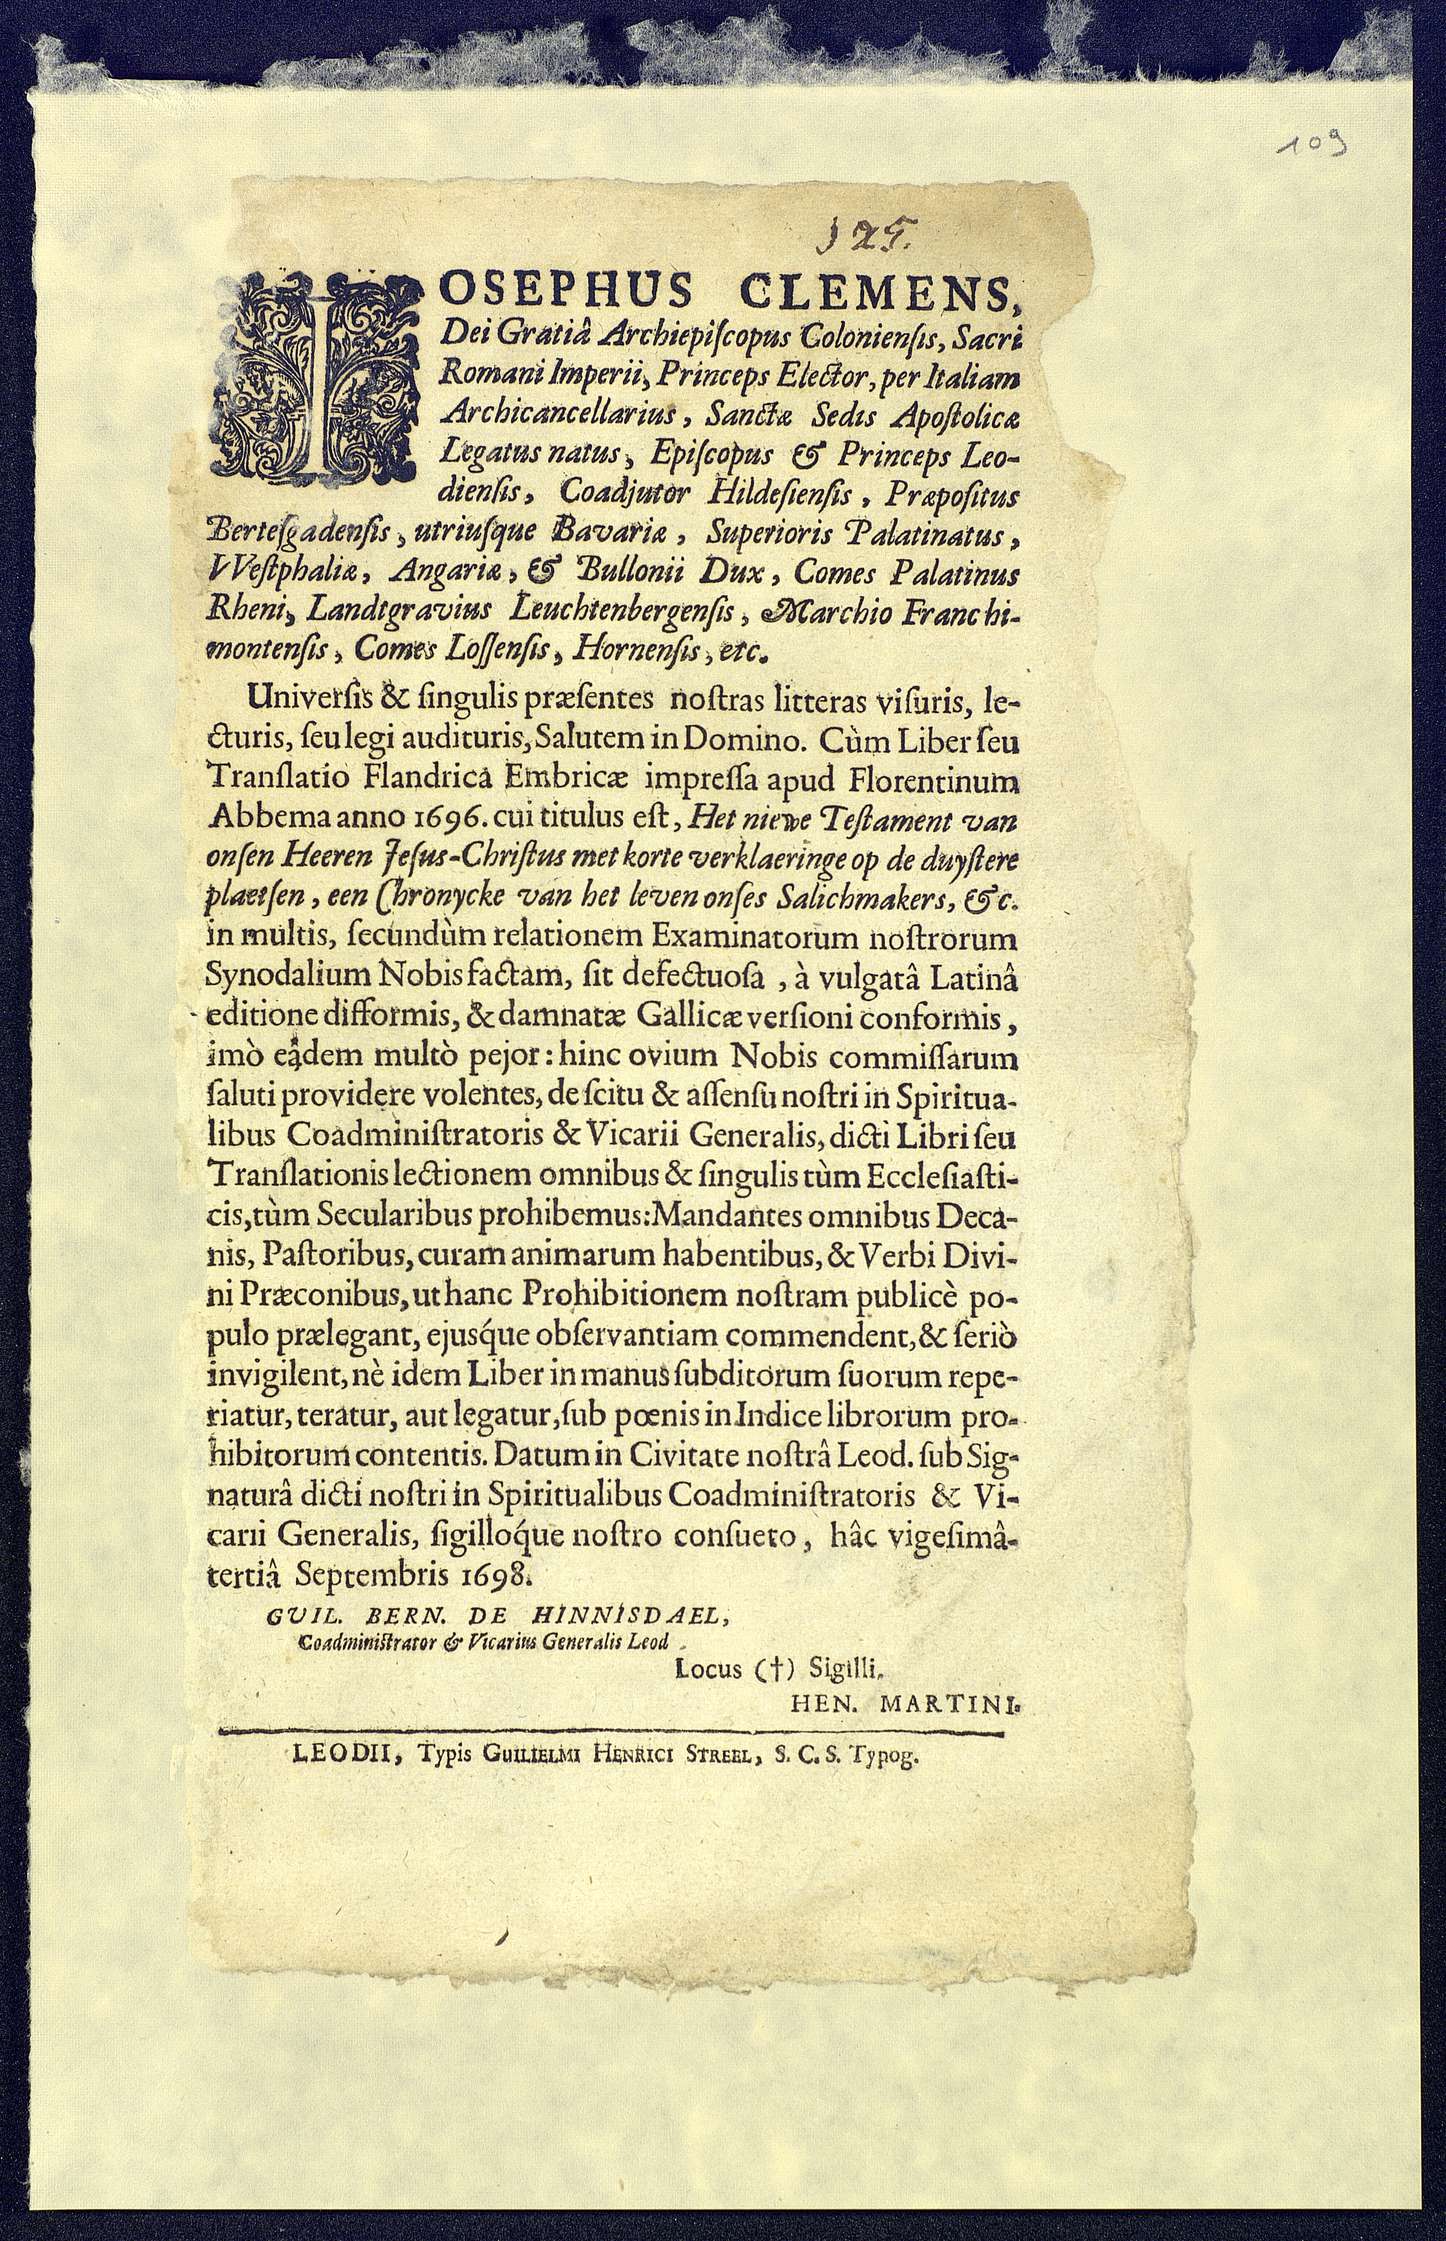 109
125.
IOSEPHUS CLEMENS,
Dei Gratiâ Archiepiſcopus Colonienſis, Sacri
Romani Imperii, Princeps Elector, per Italiam
Archicancellarius, Sanctæ Sedis Apoſtolicæ
Legatus natus, Epiſcopus & Princeps Leo-
dienſis, Coadjutor Hildeſienſis, Præpoſitus
Berteſgadenſis, utriuſque Bavariæ, Superioris Palatinatus,
VVeſtphaliæ, Angariæ, & Bullonii Dux, Comes Palatinus
Rheni, Landtgravius Leuchtenbergenſis, Marchio Franchi-
montenſis, Comes Loſſenſis, Hornenſis, etc.
Univerſis & ſingulis præſentes noſtras litteras viſuris, le-
cturis, ſeu legi audituris, Salutem in Domino. Cùm Liber ſeu
Tranſlatio Flandrica Embricæ impreſſa apud Florentinum
Abbema anno 1696. cui titulus eſt, Het niewe Teſtament van
onſen Heeren Jeſus-Chriſtus met korte verklaeringe op de duyſtere
plaetſen, een Chronycke van het leven onſes Salichmakers, &c.
in multis, ſecundùm relationem Examinatorum noſtrorum
Synodalium Nobis factam, ſit defectuoſa, à vulgatâ Latinâ
editione difformis, & damnatæ Gallicæ verſioni conformis,
imò eâdem multò pejor: hinc ovium Nobis commiſſarum
ſaluti providere volentes, de ſcitu & aſſenſu noſtri in Spiritua-
libus Coadminiſtratoris & Vicarii Generalis, dicti Libri ſeu
Tranſlationis lectionem omnibus & ſingulis tùm Eccleſiaſti-
cis, tùm Secularibus prohibemus: Mandantes omnibus Deca-
nis, Paſtoribus, curam animarum habentibus, & Verbi Divi-
ni Præconibus, ut hanc Prohibitionem noſtram publicè po-
pulo prælegant, ejuſq́ue obſervantiam commendent, & ſeriò
invigilent, nè idem Liber in manus ſubditorum ſuorum repe-
riatur, teratur, aut legatur, ſub pœnis in Indice librorum pro-
hibitorum contentis. Datum in Civitate noſtrâ Leod. ſub Sig-
naturâ dicti noſtri in Spiritualibus Coadminiſtratoris & Vi-
carii Generalis, ſigilloq́ue noſtro conſueto, hâc vigeſimâ-
tertiâ Septembris 1698.
GUIL. BERN. DE HINNISDAEL,
Coadminiſtrator & Vicarius Generalis Leod.
Locus (†) Sigilli.
HEN. MARTINI.
LEODII, Typis GUILIELMI HENRICI STREEL, S. C. S. Typog.